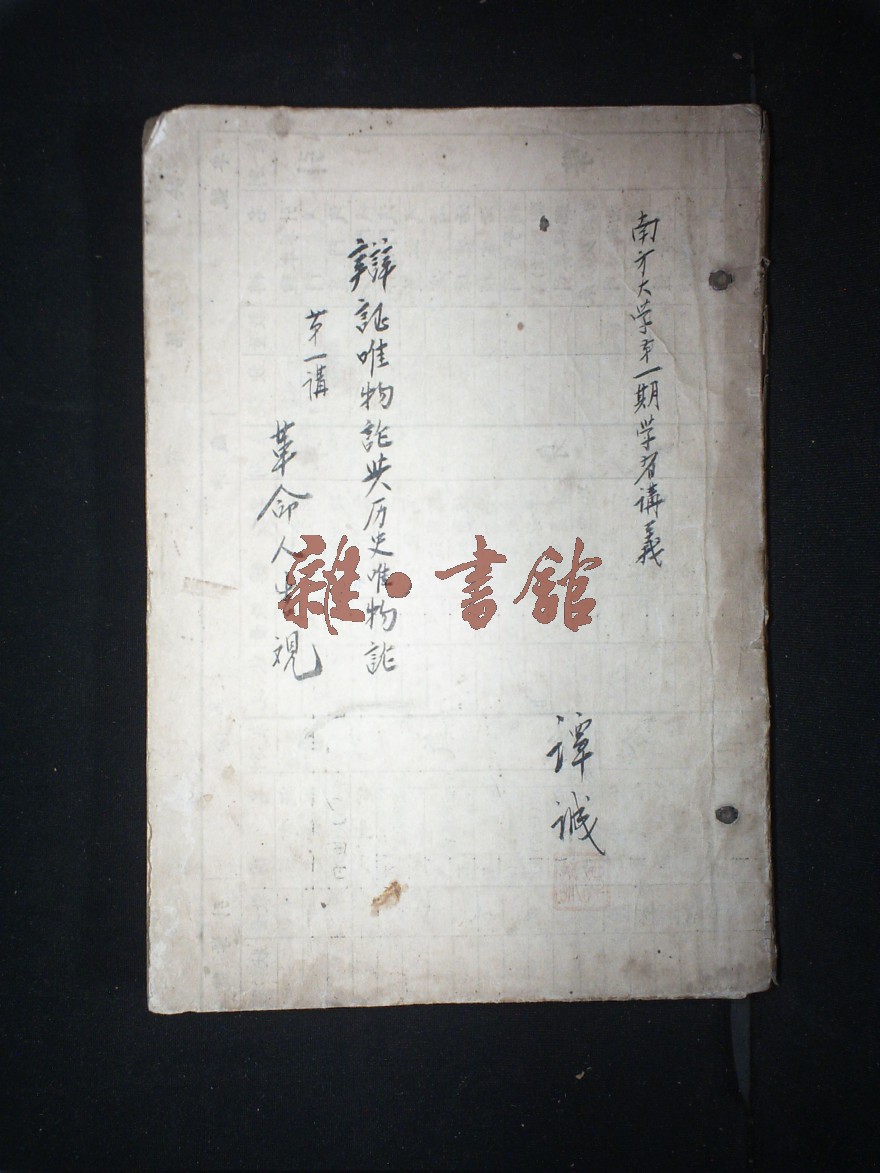 南方大学第一期学習講義
譚誠
辯証唯物論與历史唯物論
第一講
革命人生覌
雜·書館